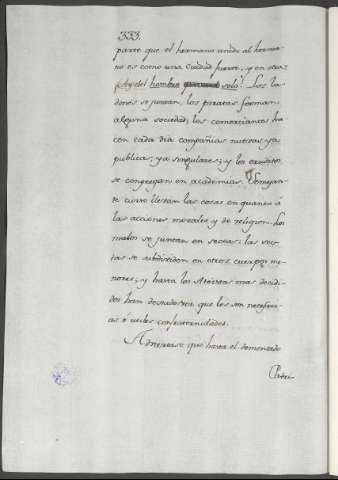 333.
parte que el hermano unido al herma-
no es como una Ciudad fuerte; y en otra:
¡Ay del hombre solo! Los la-
drones se juntan, los piratas forman
alguna sociedad; los comerciantes ha-
cen cada dia compañias nuevas ya
publicas, ya singulares; y los
se congregan en academias. Semejan-
te curso llevan las cosas en quanto á
las acciones morales y de religion. Los
malos se juntan en sectas: las sec-
tas se subdividen en otros cuerpos me-
nores; y hasta los Atheistas mas decidi-
dos han que les son necesari-
as ó utiles confraternidades.
Adviertase que hasta el demasiado